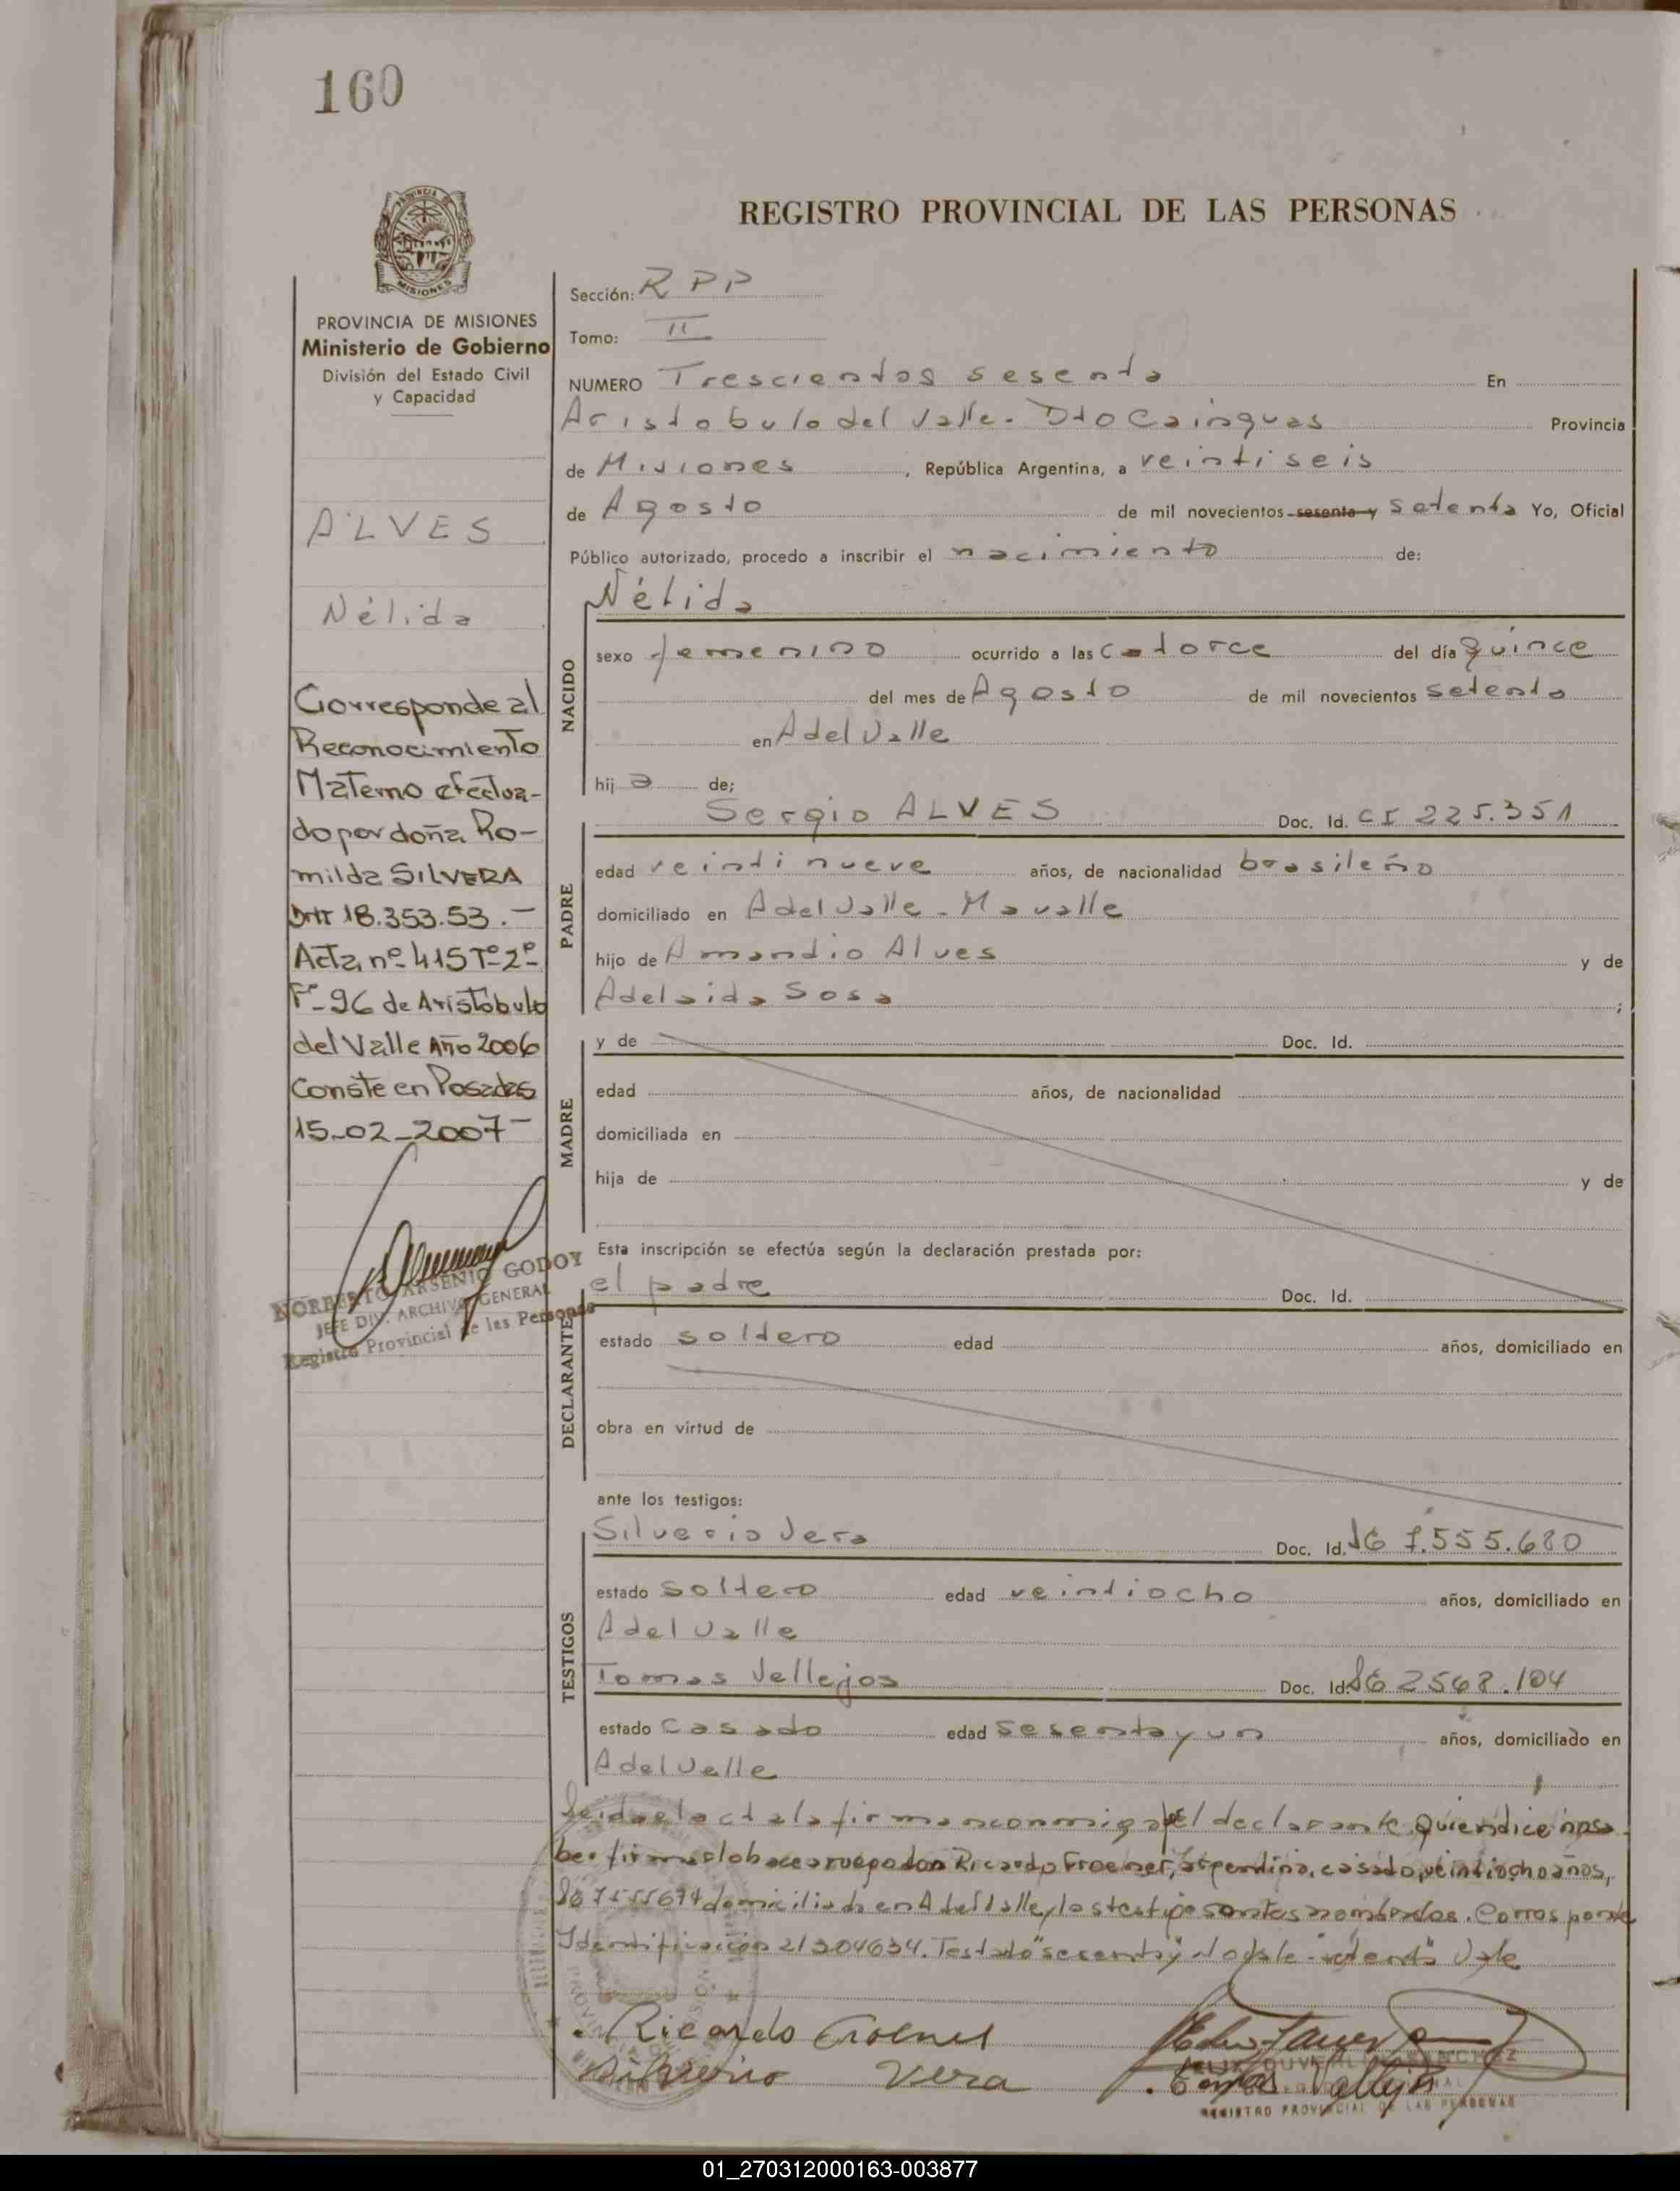 160
PROVINCIA DE MISIONES
Ministerio de Gobierno
División del Estado Civil
y Capacidad
ALVES
Nélida
Corresponde al
Reconocimiento
Materno efectua-
do por doña Ro-
milda SILVERA
DNI 18.353.53.-
Acta nº 415 Tº 2º
Fº-96 de Aristóbulo
del Valle Año 2006
Conste en Posadas
15-02-2007-
NORBERTO ARSENIO GODOY
JEFE DIV. ARCHIVO GENERAL
Registro Provincial de las Personas
REGISTRO PROVINCIAL DE LAS PERSONAS
Sección: RPP
Tomo: II
NUMERO Trescientos sesenta En
Aristobulo del Valle. Dto Cainguas Provincia
de Misiones, República Argentina, a veintiseis
de Agosto de mil novecientos sesenta y setenta Yo, Oficial
Público autorizado, procedo a inscribir el nacimiento de:
Nélida
NACIDO
sexo femenino ocurrido a las catorce del día quince
del mes de Agosto de mil novecientos setenta
en A del Valle
hija de;
Sergio ALVES Doc. Id. CI 225.351
PADRE
edad veintinueve años, de nacionalidad brasileño
domiciliado en A del Valle - Mavalle
hijo de Amandio Alves y de
Adelaida Sosa ;
MADRE
y de Doc. Id.
edad años, de nacionalidad
domiciliada en
hija de y de
Esta inscripción se efectúa según la declaración prestada por:
el padre Doc. Id.
DECLARANTE
estado soltero edad años, domiciliado en
obra en virtud de
ante los testigos:
Silverio Vera Doc. Id. 7.555.680
TESTIGOS
estado soltero edad veintiocho años, domiciliado en
A del Valle
Tomas Vallejos Doc. Id. 2568.104
estado casado edad sesenta y un años, domiciliado en
A del Valle
Leida el acta la firman conmigo el declarante quien dice no sa
ber firmar lo hace a ruego don Ricardo Froener, casado, veintiocho años,
domiciliado en A del Valle, los testigos nombrados. Corresponde
Identificación 21304634. Testado "sesenta y" no vale "setenta" Vale
Ricardo Froener
Silverio Vera
Tomas Vallejos
REGISTRO PROVINCIAL DE LAS PERSONAS
01_270312000163-003877